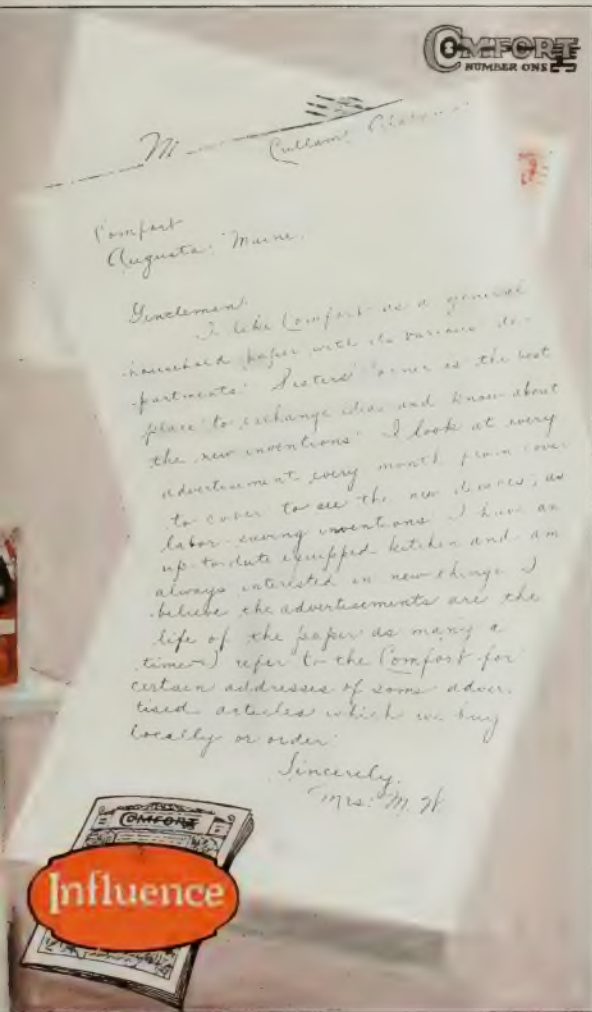 COMFORT
NUMBER ONE
M
Comfort
Augusta, Maine.
Gentlemen
I like Comfort as a general
household paper with its various de-
partments. Sisters' Corner is the best
place to exchange ideas and know about
the new inventions. I look at every
advertisement every month from cover
to cover to see the new devices, as
labor-saving inventions. I have an
up-to-date equipped kitchen and am
always interested in new things. I
believe the advertisements are the
life of the paper as many a
time I refer to the Comfort for
certain addresses of some adver-
tised articles which we buy
locally or order.
Sincerely,
Mrs. M. W.
COMFORT
Influence